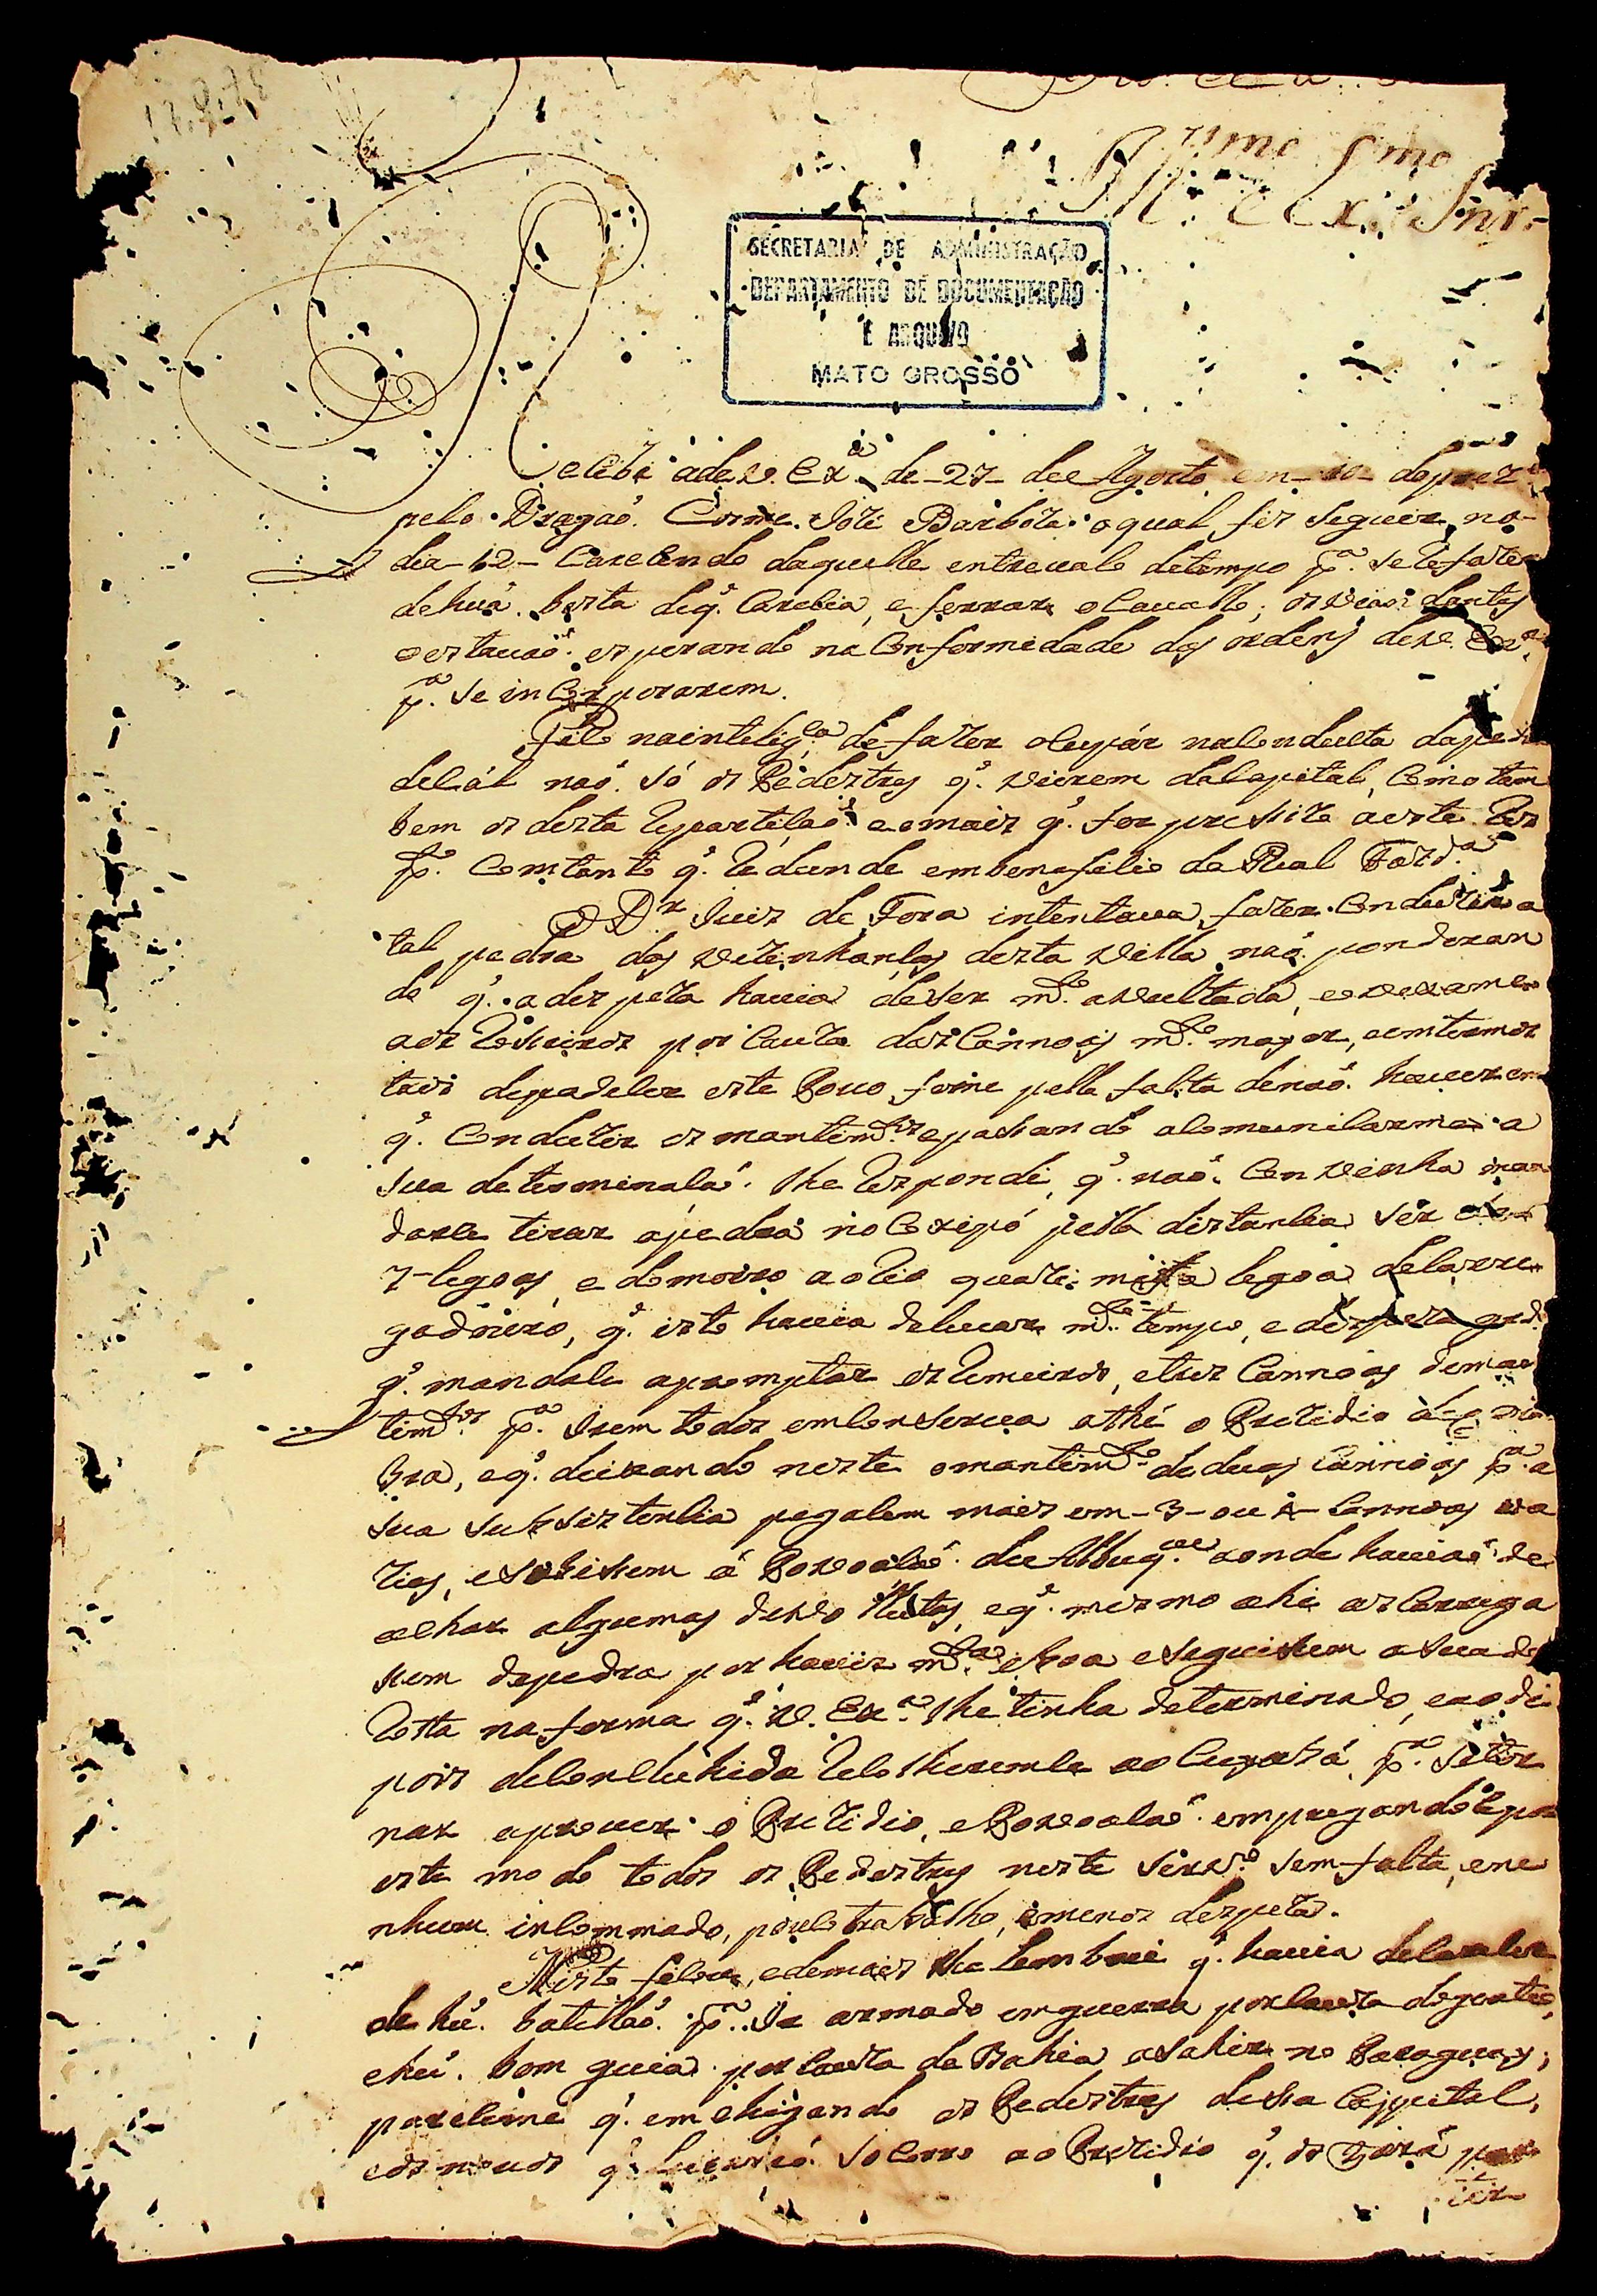 Ill.mo e Ex.mo Snr.
SECRETARIA DE ADMINISTRAÇÃO
DEPARTAMENTO DE DOCUMENTAÇÃO
E ARQUIVO
MATO GROSSO
Recebi a de V. Ex.a de 27 de Agosto em 10 do prez
pelo Dragaõ Cosme Jozé Barboza o qual fiz seguir no
dia 12 Carecendo daquelle entrevalo de tempo p.a se refazer
de huã besta de q. Carecia, e ferrar o Cavallo; os dantes
o estavaõ esperando na Conformidade das ordens de V. Ex.a
p.a se incorporarem.
Fico na intelig.ca de fazer ocupár na Conducta da pedra
de Cál naõ só os Pedestres q. vierem da Capital, Como tam
bem os desta Repartiçaõ e o mais q. for preciso a este res
p.o Com tanto q. redunde em beneficio da Real Fazd.a
O D.r Juiz de Fora intentava fazer Conduzir a
tal pedra dos vezinhanças desta villa naõ ponderan
do q. a despeza havia de ser m.to avultada, e o vexame
aos Roceiros por Cauza das Cannoas m.to mayor, e em termos
de padecer este Povo fome pella falta de naõ haver em
q. Conduzir os mantim.tos e passando a comunicarme a
sua determinaçaõ lhe respondi, q. naõ Convinha man
darse tirar a pedra no Coxipó pella distancia ser
7 legoas, e do morro ao Rio quazi meya legoa de Carre
gadouro, q. isto havia de levar m.to tempo, e despeza
q. mandace apromptar os Remeiros, e tres Cannoas de man
tim.tos p.a irem todos em Conserva athé o Prezidio de Coim
bra, e q. deixando neste o mantim.to de duas Cannoas p.a a
sua subsistencia pegacem mais em 3 ou 4 Cannoas va
zias, e subissem á Povoaçaõ de Albuq.ue aonde haviaõ de
achar algumas destas, e q. mesmo ahi as Carrega
ssem de pedra por haver m.ta e boa e seguissem a sua de
rotta na forma q. V. Ex.a lhe tinha determinado, e ao de
pois de Concluhida recolheremce ao Cuyabá p.a se tor
nar a prover o Prezidio, e Povoaçaõ empregandoce por
este modo todos os Pedestres neste serv.o sem falta, e ne
nhum incommodo, pouco trabalho, e menos despeza.
Nisto ficou, e demais lhe lembrei q. havia de Carecer
de hũ batellaõ p.a ir armado em guerra por Cauza do gentio,
e hũ bom guia por Cauza da Bahia a sahir no Paraguay;
parecime q. em chegando os Pedestres dessa Cappital,
e os novos q. Socorro ao Prezidio q. os fará par
tir